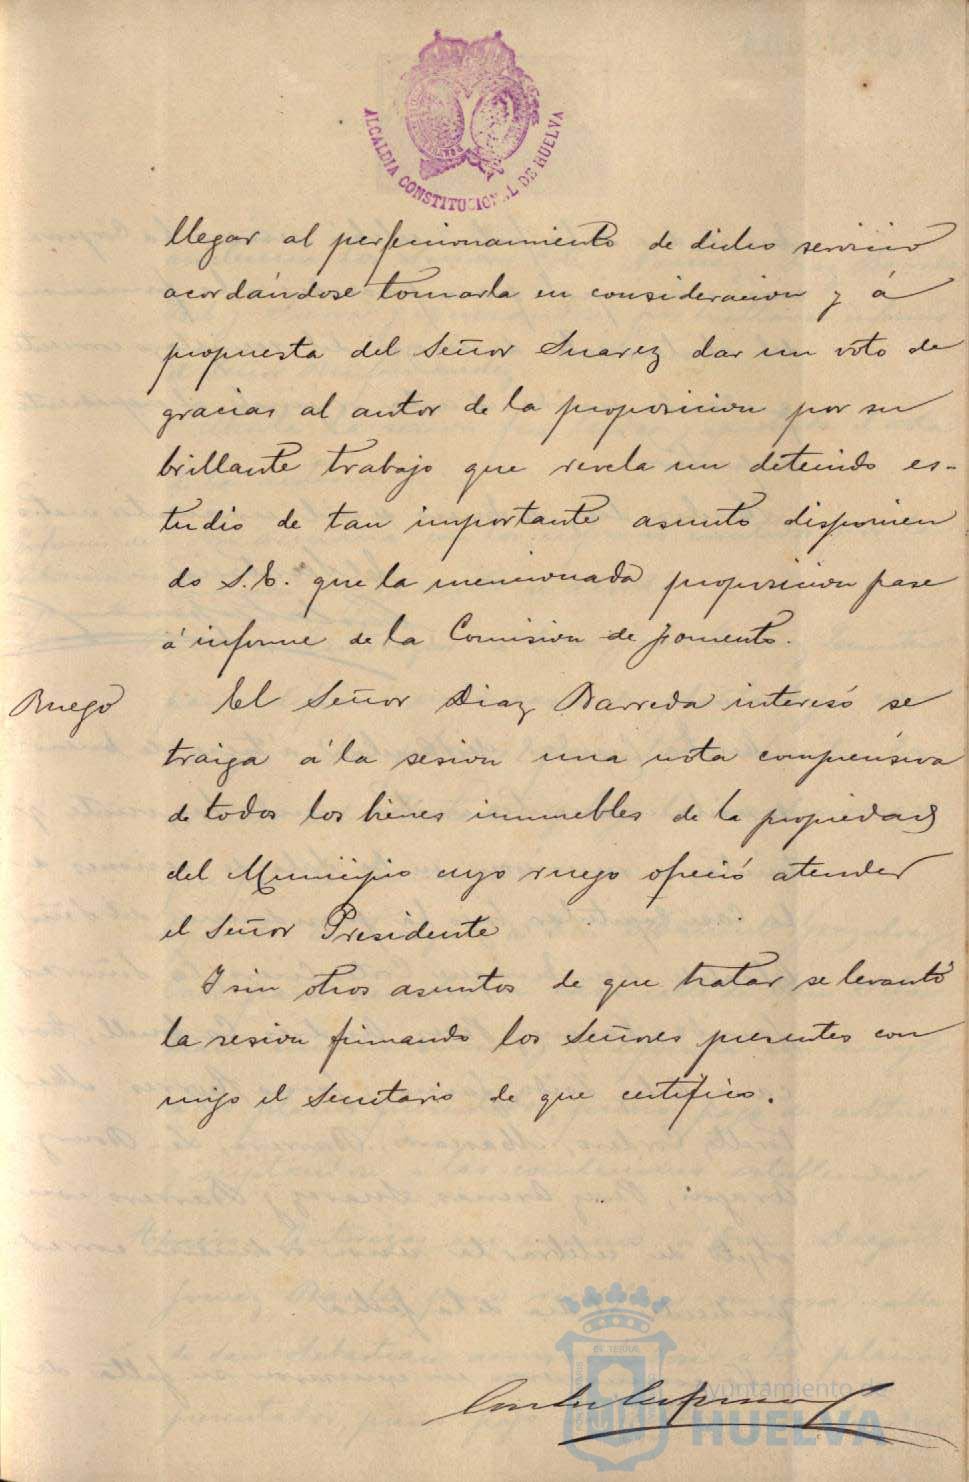 ALCALDIA CONSTITUCIONAL DE HUELVA
llegar al perfeccionamiento de dicho servicio
acordándose tomarla en consideracion y á
propuesta del Señor Suarez dar un voto de
gracias al autor de la proposicion por su
brillante trabajo que revela un detenido es-
tudio de tan importante asunto disponien
do S.E. que la mencionada proposicion pase
á informe de la Comision de Fomento.
Ruego
El Señor Diaz Barreda interesó se
traiga á la sesion una nota comprensiva
de todos los bienes inmuebles de la propiedad
del Municipio cuyo ruego ofreció atender
el Señor Presidente
Y sin otros asuntos de que tratar se levantó
la sesion firmando los Señores presentes con
migo el Secretario de que certifico.
Ayuntamiento de
HUELVA